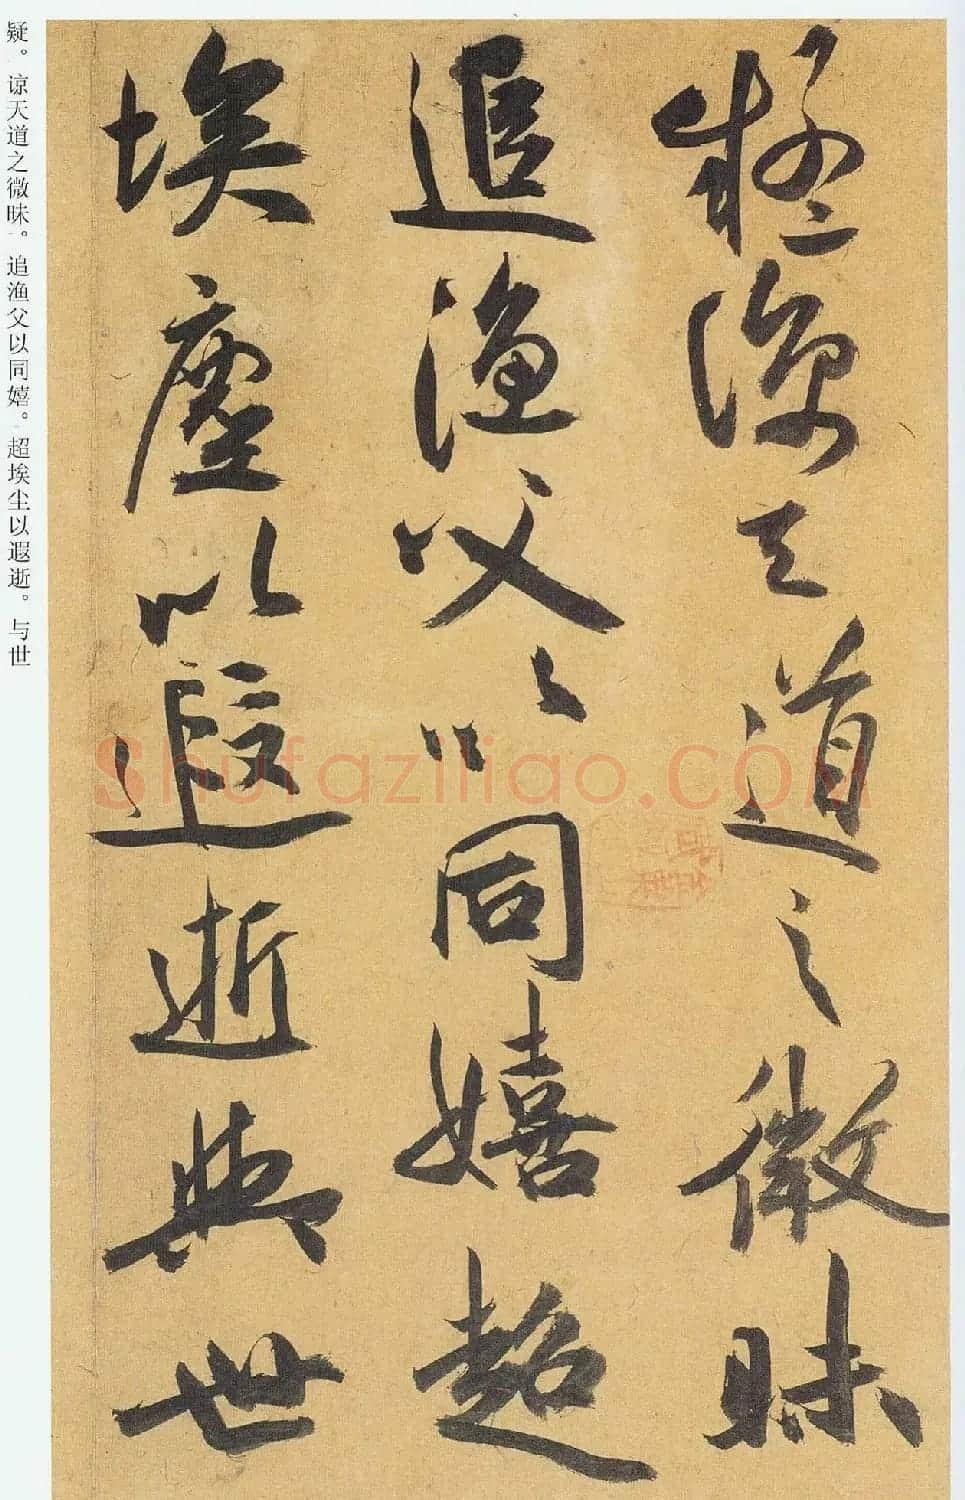 疑谅天道之微昧
追渔父以同嬉超
埃尘以遐逝与世
疑。谅天道之微昧。追渔父以同嬉。超埃尘以遐逝。与世
Shufaziliao.COM